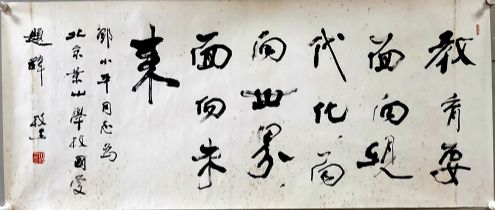 教育要
面向現
代化面
向世界
面向未
来
鄧小平同志为
北京景山學校國慶
題辞